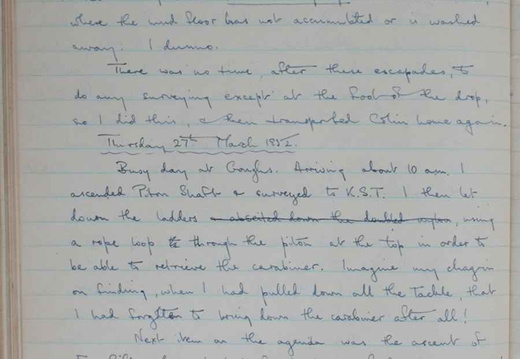 where the mud floor has not accumulated or is washed
away. I dunno.
There was no time, after these escapades, to
do any surveying except at the foot of the drop,
so I did this, & then transported Colin home again.
Thursday 27th March 1952.
Busy day at Goughs. Arriving about 10 am. I
ascended Piton Shaft & surveyed to K.S.T. I then let
down the ladders & abseiled down the doubled nylon, using
a rope loop through the piton at the top in order to
be able to retrieve the carabiner. Imagine my chagrin
on finding, when I had pulled down all the tackle, that
I had forgotten to bring down the carabiner after all!
Next item on the agenda was the ascent of